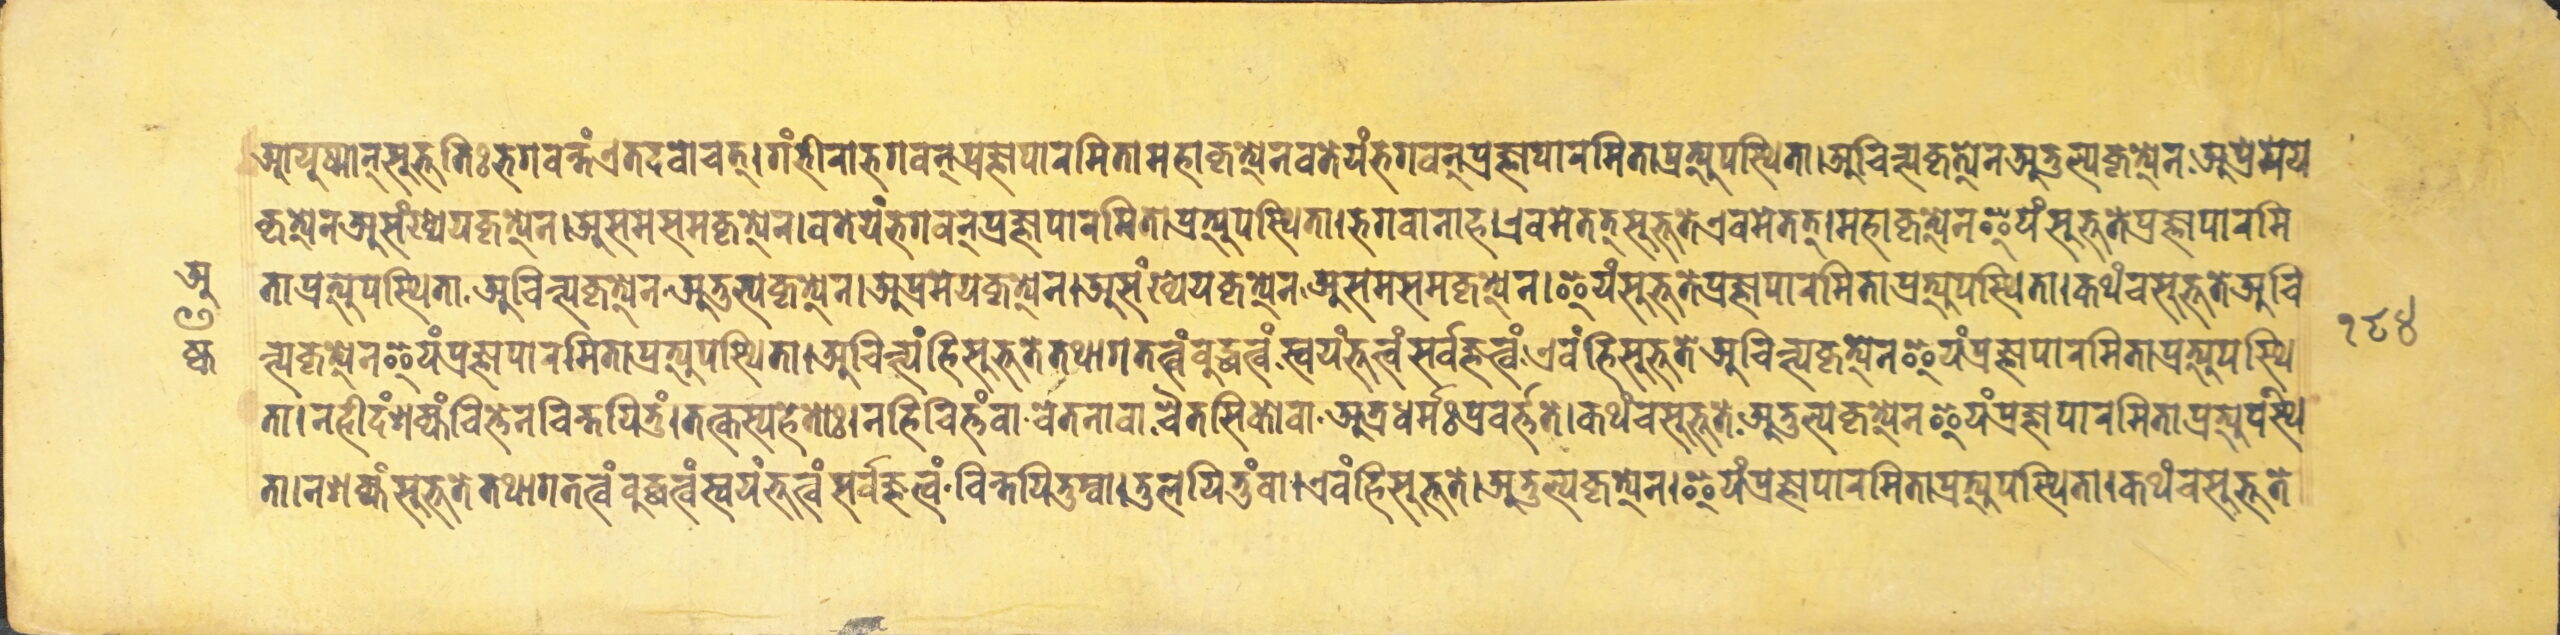 आयुष्मान्सुभूतिःभगवन्तंएतदवोचत्।गंभीराभगवन्प्रज्ञापारमितामहाकृत्येनवतेयंभगवन्प्रज्ञापारमिताप्रत्युपस्थिता।अचिन्त्यकृत्येनअतुल्यकृत्येन।अप्रमेय
कृत्येनअसंख्येयकृत्येन।असमसमकृत्येन।वतेयंभगवन्प्रज्ञापारमिता।प्रत्युपस्थिता।भगवानाह।एवमेतत्सुभूतेएवमेतत्।महाकृत्येनइयंसुभूतेप्रज्ञापारमि
ताप्रत्युपस्थिता।अचिन्त्यकृत्येन।अतुल्यकृत्येन।अप्रमेयकृत्येन।असंख्येयकृत्येन।असमसमकृत्येन।इयंसुभूतेप्रज्ञापारमिताप्रत्युपस्थिता।कथंचसुभूतेअचि
न्त्यकृत्येनइयंप्रज्ञापारमिताप्रत्युपस्थिता।अचिन्त्यंहिसुभूतेतथागतत्वंबुद्धत्वं।स्वयंभूत्वंसर्वज्ञत्वं।एवंहिसुभूतेअचिन्त्यकृत्येनइयंप्रज्ञापारमिताप्रत्युपस्थि
ता।नहीदंशक्यंचित्तेनचिन्तयितुं।तत्कस्यहेतोः।नहिचित्तंवा।चेतनावा।चैतसिकोवा।अत्रधर्मःप्रवर्त्तते।कथंचसुभूते।अतुल्यकृत्येनइयंप्रज्ञापारमिताप्रत्युपस्थि
ता।नशक्यंसुभूतेतथागतत्वंबुद्धत्वंस्वयंभूत्वंसर्वज्ञत्वं।चिन्तयितुम्वा।तुलयितुंवा।एवंहिसुभूते।अतुल्यकृत्येन।इयंप्रज्ञापारमिताप्रत्युपस्थिता।कथंचसुभूते
अ
ष्ट
१८४